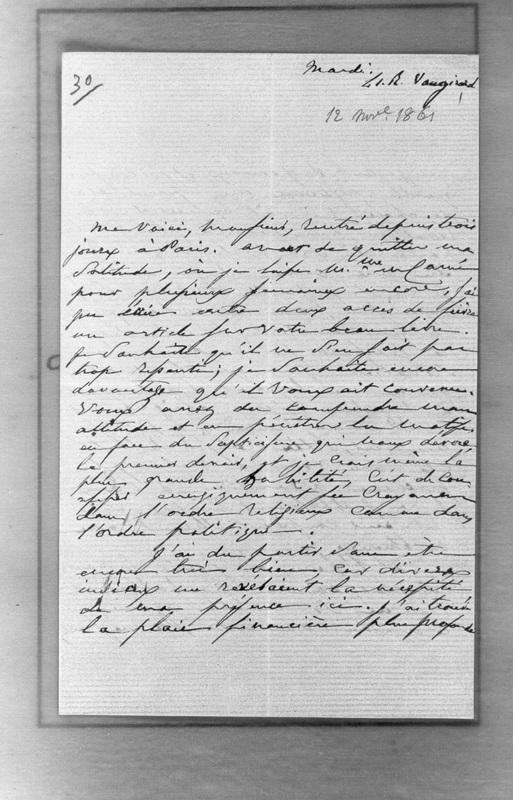 30
Mardi.
41. R. Vaugirard
12 Nov.e 1861
Me voici, Monsieur, rentré depuis trois
jours à Paris. avant de quitter ma
Solitude, où je laisse M. me de Carné
pour plusieurs semaines encore, j'ai
pu écrire entre deux accès de fièvre
un article sur votre beau livre.
Je Souhaite qu'il ne s'en soit pas
trop ressenti; je Souhaite encore
davantage qu'il vous ait convenu.
Vous avez du comprendre mon
attitude et en pénétrer les motifs
en face du Scepticisme qui nous dévore
le premier devoir, et je crois même la
plus grande habilité, c'est de con
fesser energiquement sa croyance
dans l'ordre religieux comme dans
l'ordre politique.
J'ai du partir sans être
encore très bien, car divers
indices me révélaient la nécessité
de ma présence ici. J'ai trouvé
la plaie financière plus profonde